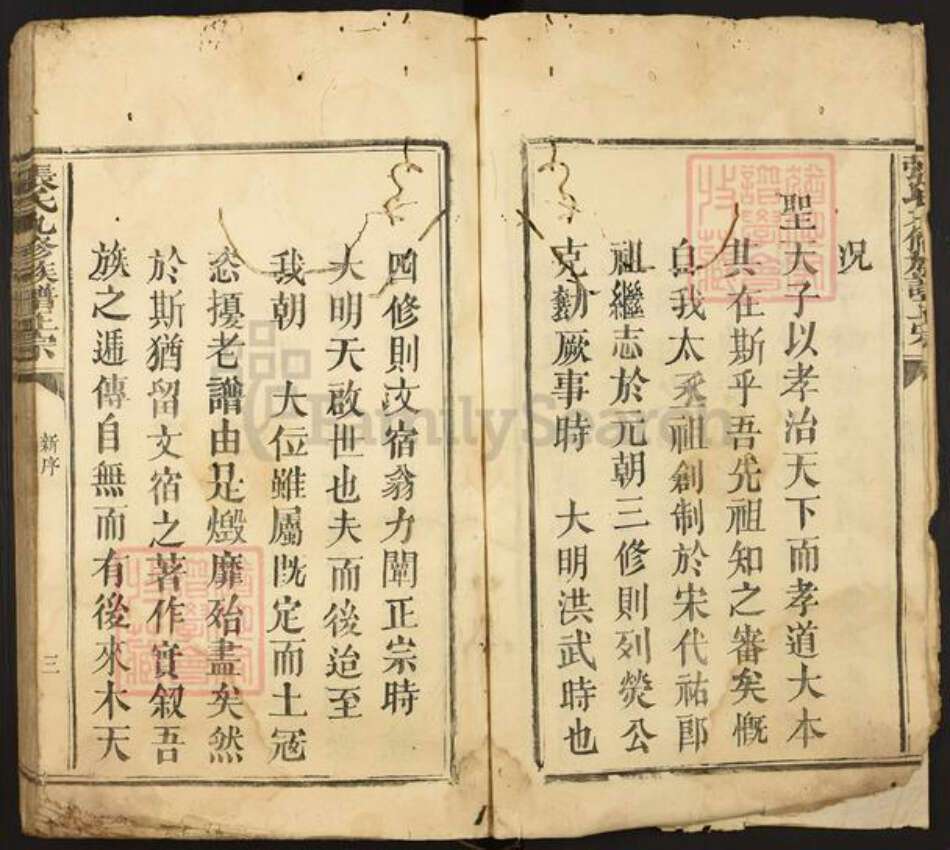 況
聖天子以孝治天下而孝道大本
其在斯乎吾先祖知之審矣慨
自我太丞祖創制於宋代祐郎
祖繼志於元朝三修則列熒公
克勷厥事時 大明洪武時也
四修則文宿翁力闡正宗時
大明天啟世也夫而後迨至
我朝 大位雖屬既定而土冦
恣擾老譜由是燬靡殆盡矣然
於斯猶留文宿之著作實叙吾
族之遞傳自無而有後來木天
張氏九修族譜正宗
新序
三
FamilySearch